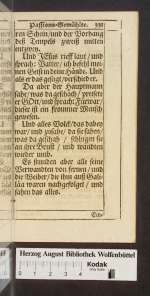 Passions-Gemüthe. 339
ren Schein/und der Vorhang
deß Tempels zerriß mitten
entzwey.
Und JEsus rieff laut / und
sprach: Vatter/ ich befehl mei-
nen Geist in deine Hände. Und
als er das gesagt/verschied er.
Da aber der Hauptmann
sahe/ was da geschah/ preisete
er GOtt/ und sprach: Fürwar/
dieser ist ein frommer Mensch
gewesen.
Und alles Volck/ das dabey
war / und zusahe / da sie sahen/
was da geschah / schlugen sie
an ihre Brust / und wandten
wieder umb.
Es stunden aber alle seine
Verwandten von fernen / und
die Weiber/ die ihm auß Gali-
läa waren nachgefolget / und
sahen das alles.
Herzog August Bibliothek Wolfenbüttel
Kodak